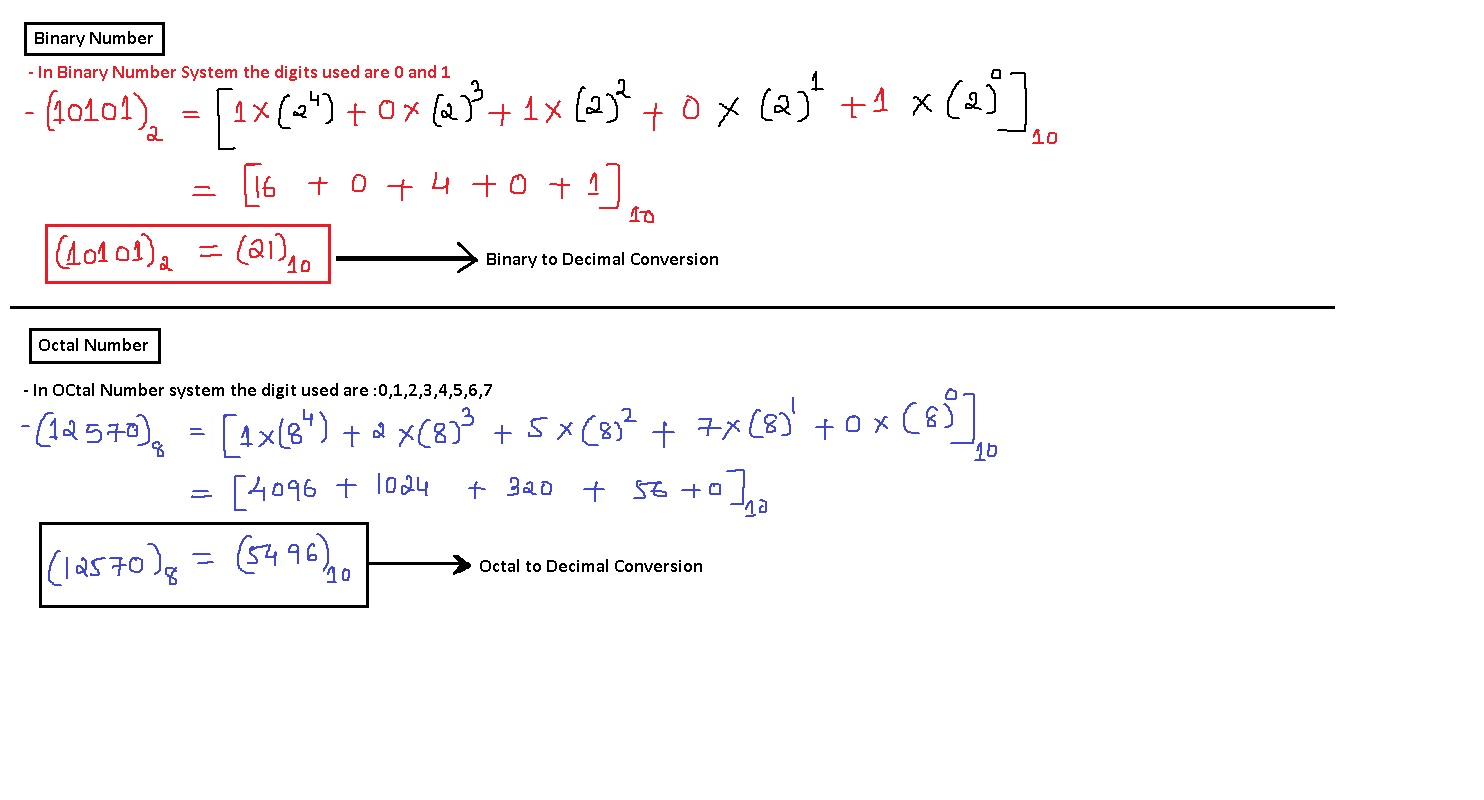 Binary Number
- In Binary Number System the digits used are 0 and 1
- (10101)₂ = [1×(2⁴) + 0×(2)³ + 1×(2)² + 0×(2)¹ + 1×(2)⁰]₁₀
= [16 + 0 + 4 + 0 + 1]₁₀
(10101)₂ = (21)₁₀ → Binary to Decimal Conversion
Octal Number
- In OCtal Number system the digit used are :0,1,2,3,4,5,6,7
- (12570)₈ = [1×(8⁴) + 2×(8)³ + 5×(8)² + 7×(8)¹ + 0×(8)⁰]₁₀
= [4096 + 1024 + 320 + 56 + 0]₁₀
(12570)₈ = (5496)₁₀ → Octal to Decimal Conversion